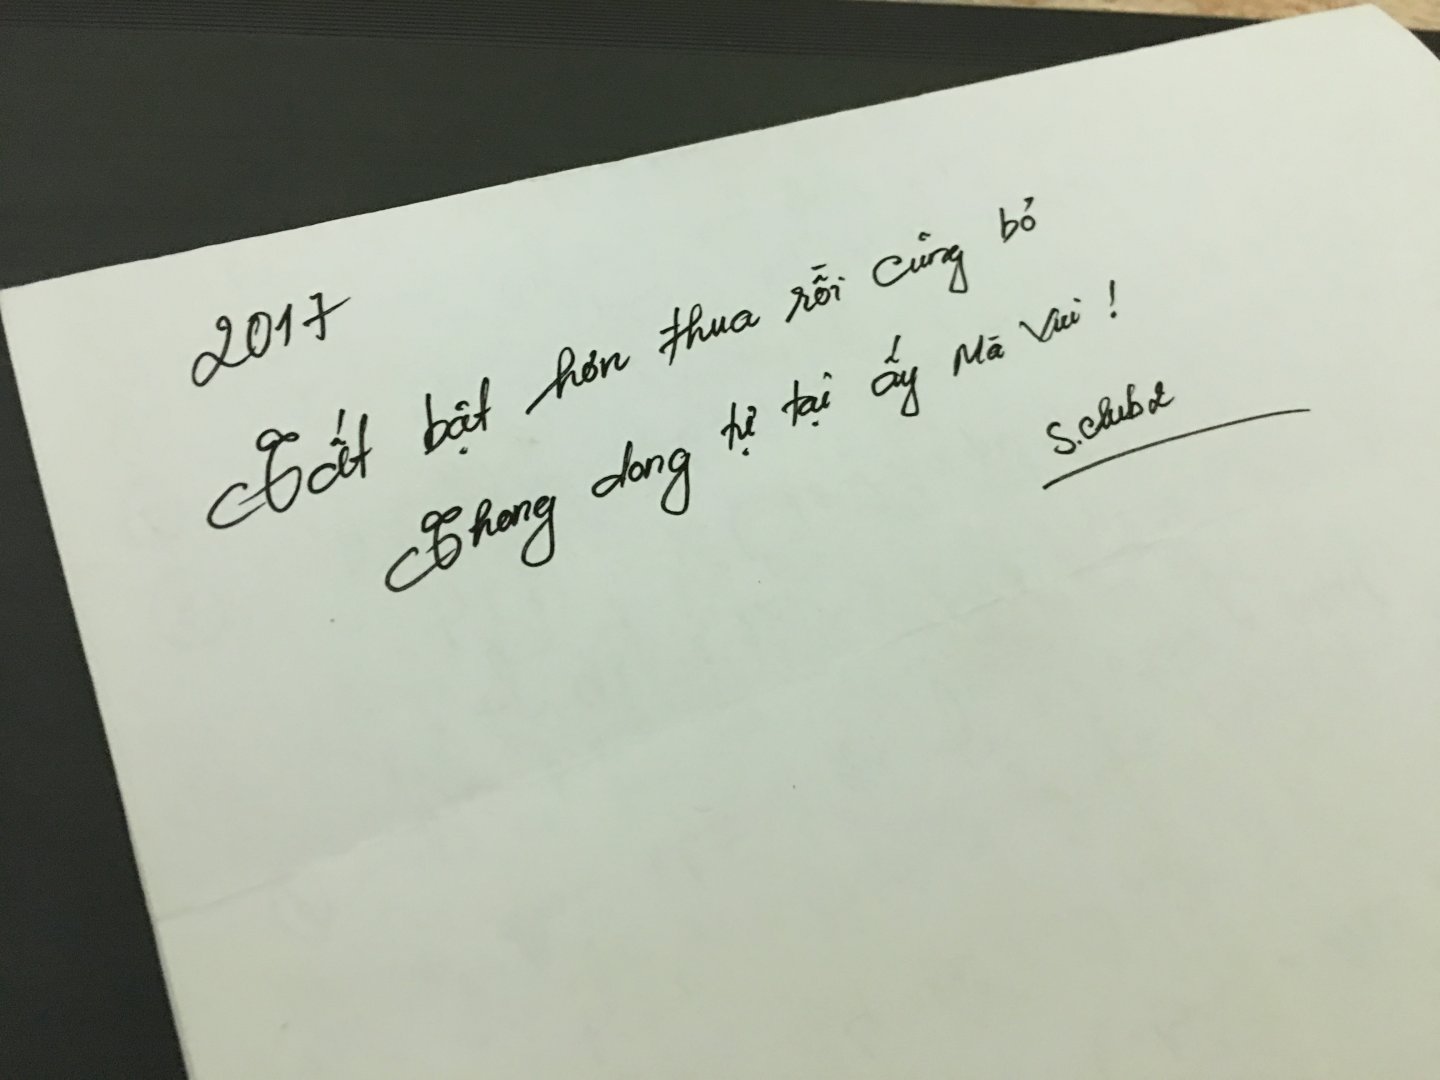 2017
Tất bật hơn thua rồi cũng bỏ
Thong dong tự tại ấy Mà Vui !
S.club2